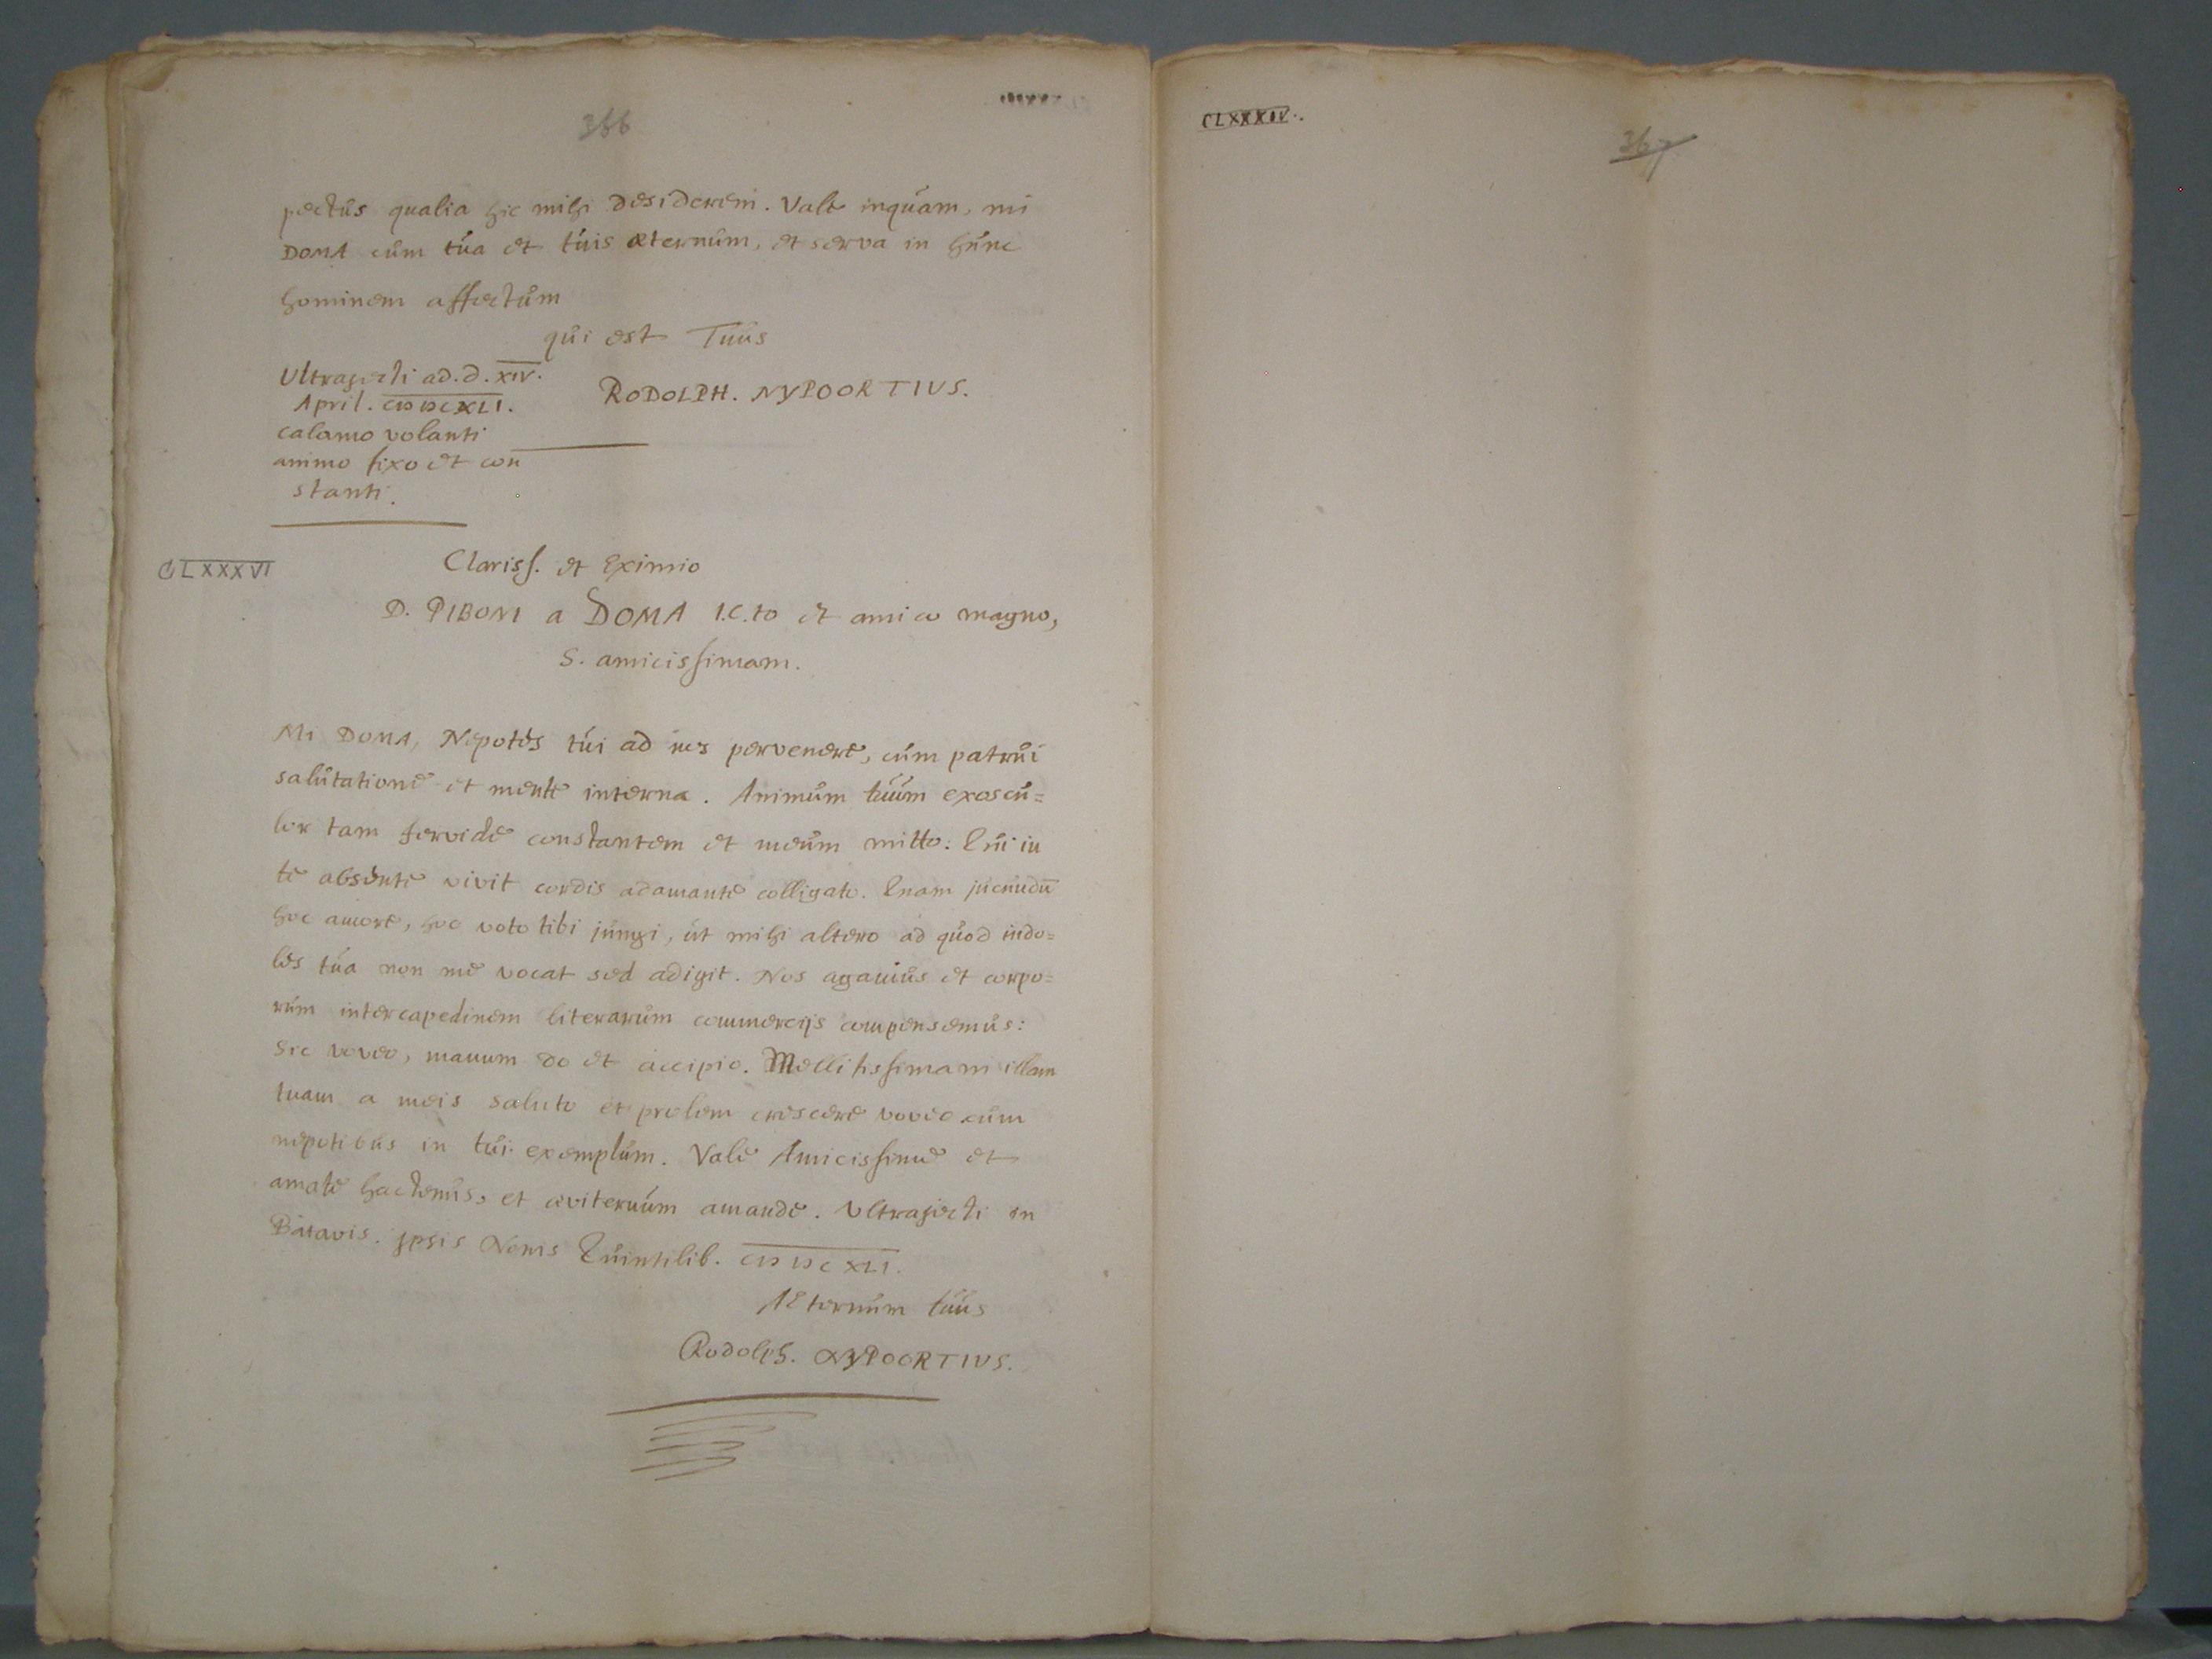 366
pectus qualia hic mihi desiderem. Vale inquam, mi
DOMA cum tua et tuis æternum, et serva in hunc
hominem affectum
qui est Tuus
Ultrajecti ad. d. XIV.
April. CIƆ IƆC XLI.
RODOLPH. NYPOORTIUS.
calamo volanti
animo fixo et con
stanti.
CLXXXVI
Clariss. et Eximio
D. PIBONI a DOMA I.C.to et amico magno,
S. amicissimam.
Mi DOMA, Nepotes tui ad nos pervenere, cum patrui
salutatione et mente interna. Animum tuum exoscu=
lor tam fervide constantem et meum mitto: Qui in
te absente vivit cordis adamante colligato. Quam jucundū
hoc amore, hoc voto tibi jungi, ut mihi altero ad quod indo=
les tua non me vocat sed adigit. Nos agamus et corpo=
rum intercapedinem literarum commercijs compensemus:
Sic voveo, manum do et accipio. Mellitissimam illam
tuam a meis saluto et prolem crescere voveo cum
nepotibus in tui exemplum. Vale Amicissime et
amate hactenus, et æviternum amande. Ultrajecti in
Batavis. ipsis Nonis Quintilib. CIƆ IƆC XLI.
Æternum tuus
Rodolph. NYPOORTIUS.
CLXXXIV.
367